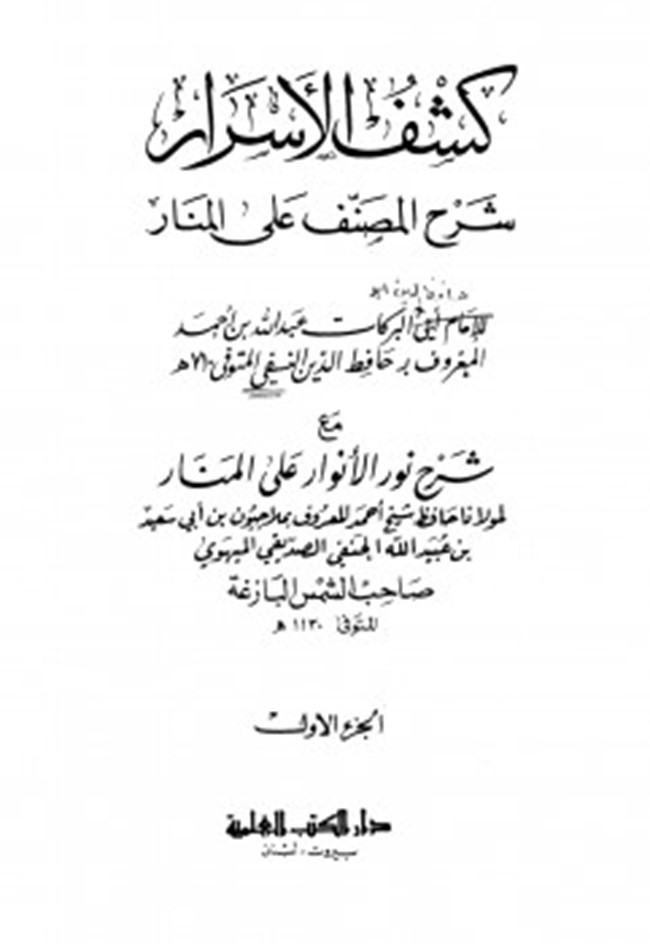 كشف الأسرار
شرح المصنف على المنار
للإمام أبي البركات عبد الله بن أحمد
المعروف بحافظ الدين النسفي المتوفى ٧١٠ هـ
مع
شرح نور الأنوار على المنار
لمولانا حافظ شيخ أحمد المعروف بملاجيون بن أبي سعيد
بن عبيد الله الحنفي الصديقي الميهوي
صاحب الشمس البازغة
المتوفى ١١٣٠ هـ
الجزء الأول
دار الكتب العلمية
بيروت - لبنان